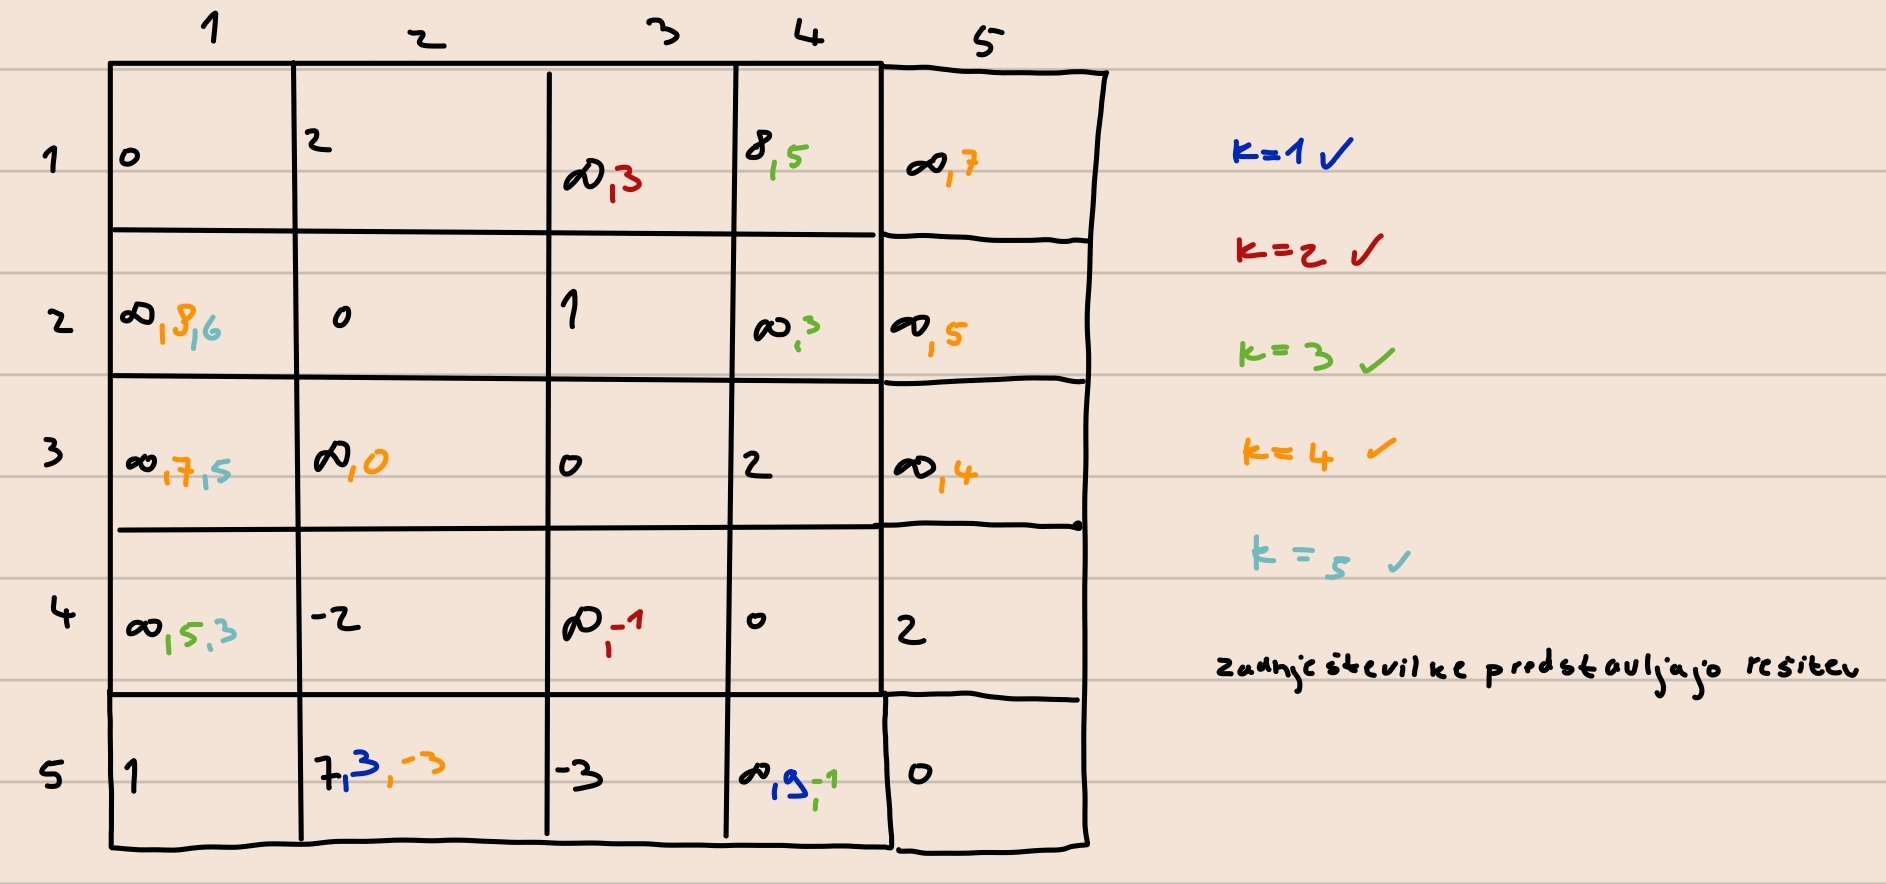 1 2 3 4 5
1 0 2 ∞,3 8,5 ∞,7 k=1 ✓
2 ∞,8,6 0 1 ∞,3 ∞,5 k=2 ✓
3 ∞,7,5 ∞,0 0 2 ∞,4 k=3 ✓
4 ∞,5,3 -2 ∞,-1 0 2 k=4 ✓
5 1 7,3,-3 -3 ∞,9,-1 0 k=5 ✓
zadnje številke predstavljajo rešitev